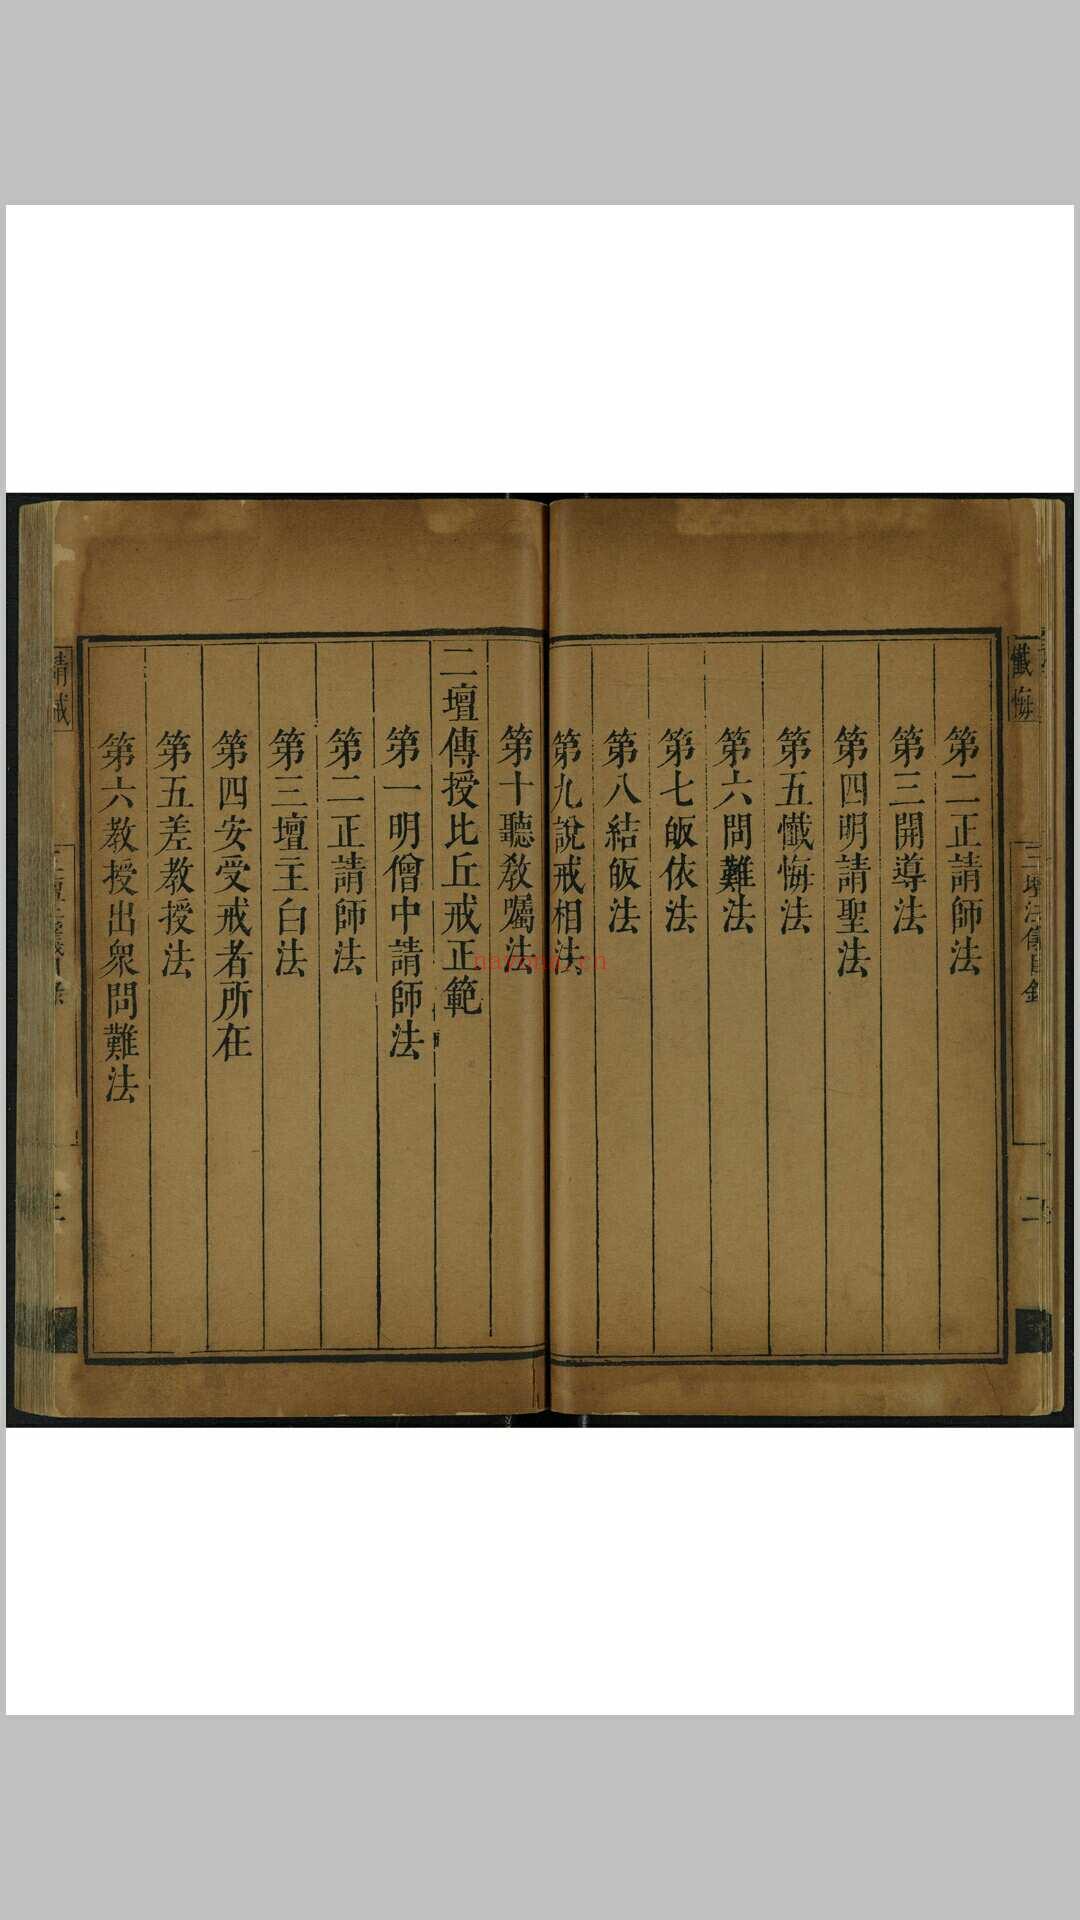 懺悔
三壇法儀目錄
二
第二正請師法
第三開導法
第四明請聖法
第五懺悔法
第六問難法
第七皈依法
第八結皈法
第九說戒相法
第十聽教囑法
二壇傳授比丘戒正範
第一明僧中請師法
第二正請師法
第三壇主白法
第四安受戒者所在
第五差教授法
第六教授出衆問難法
三